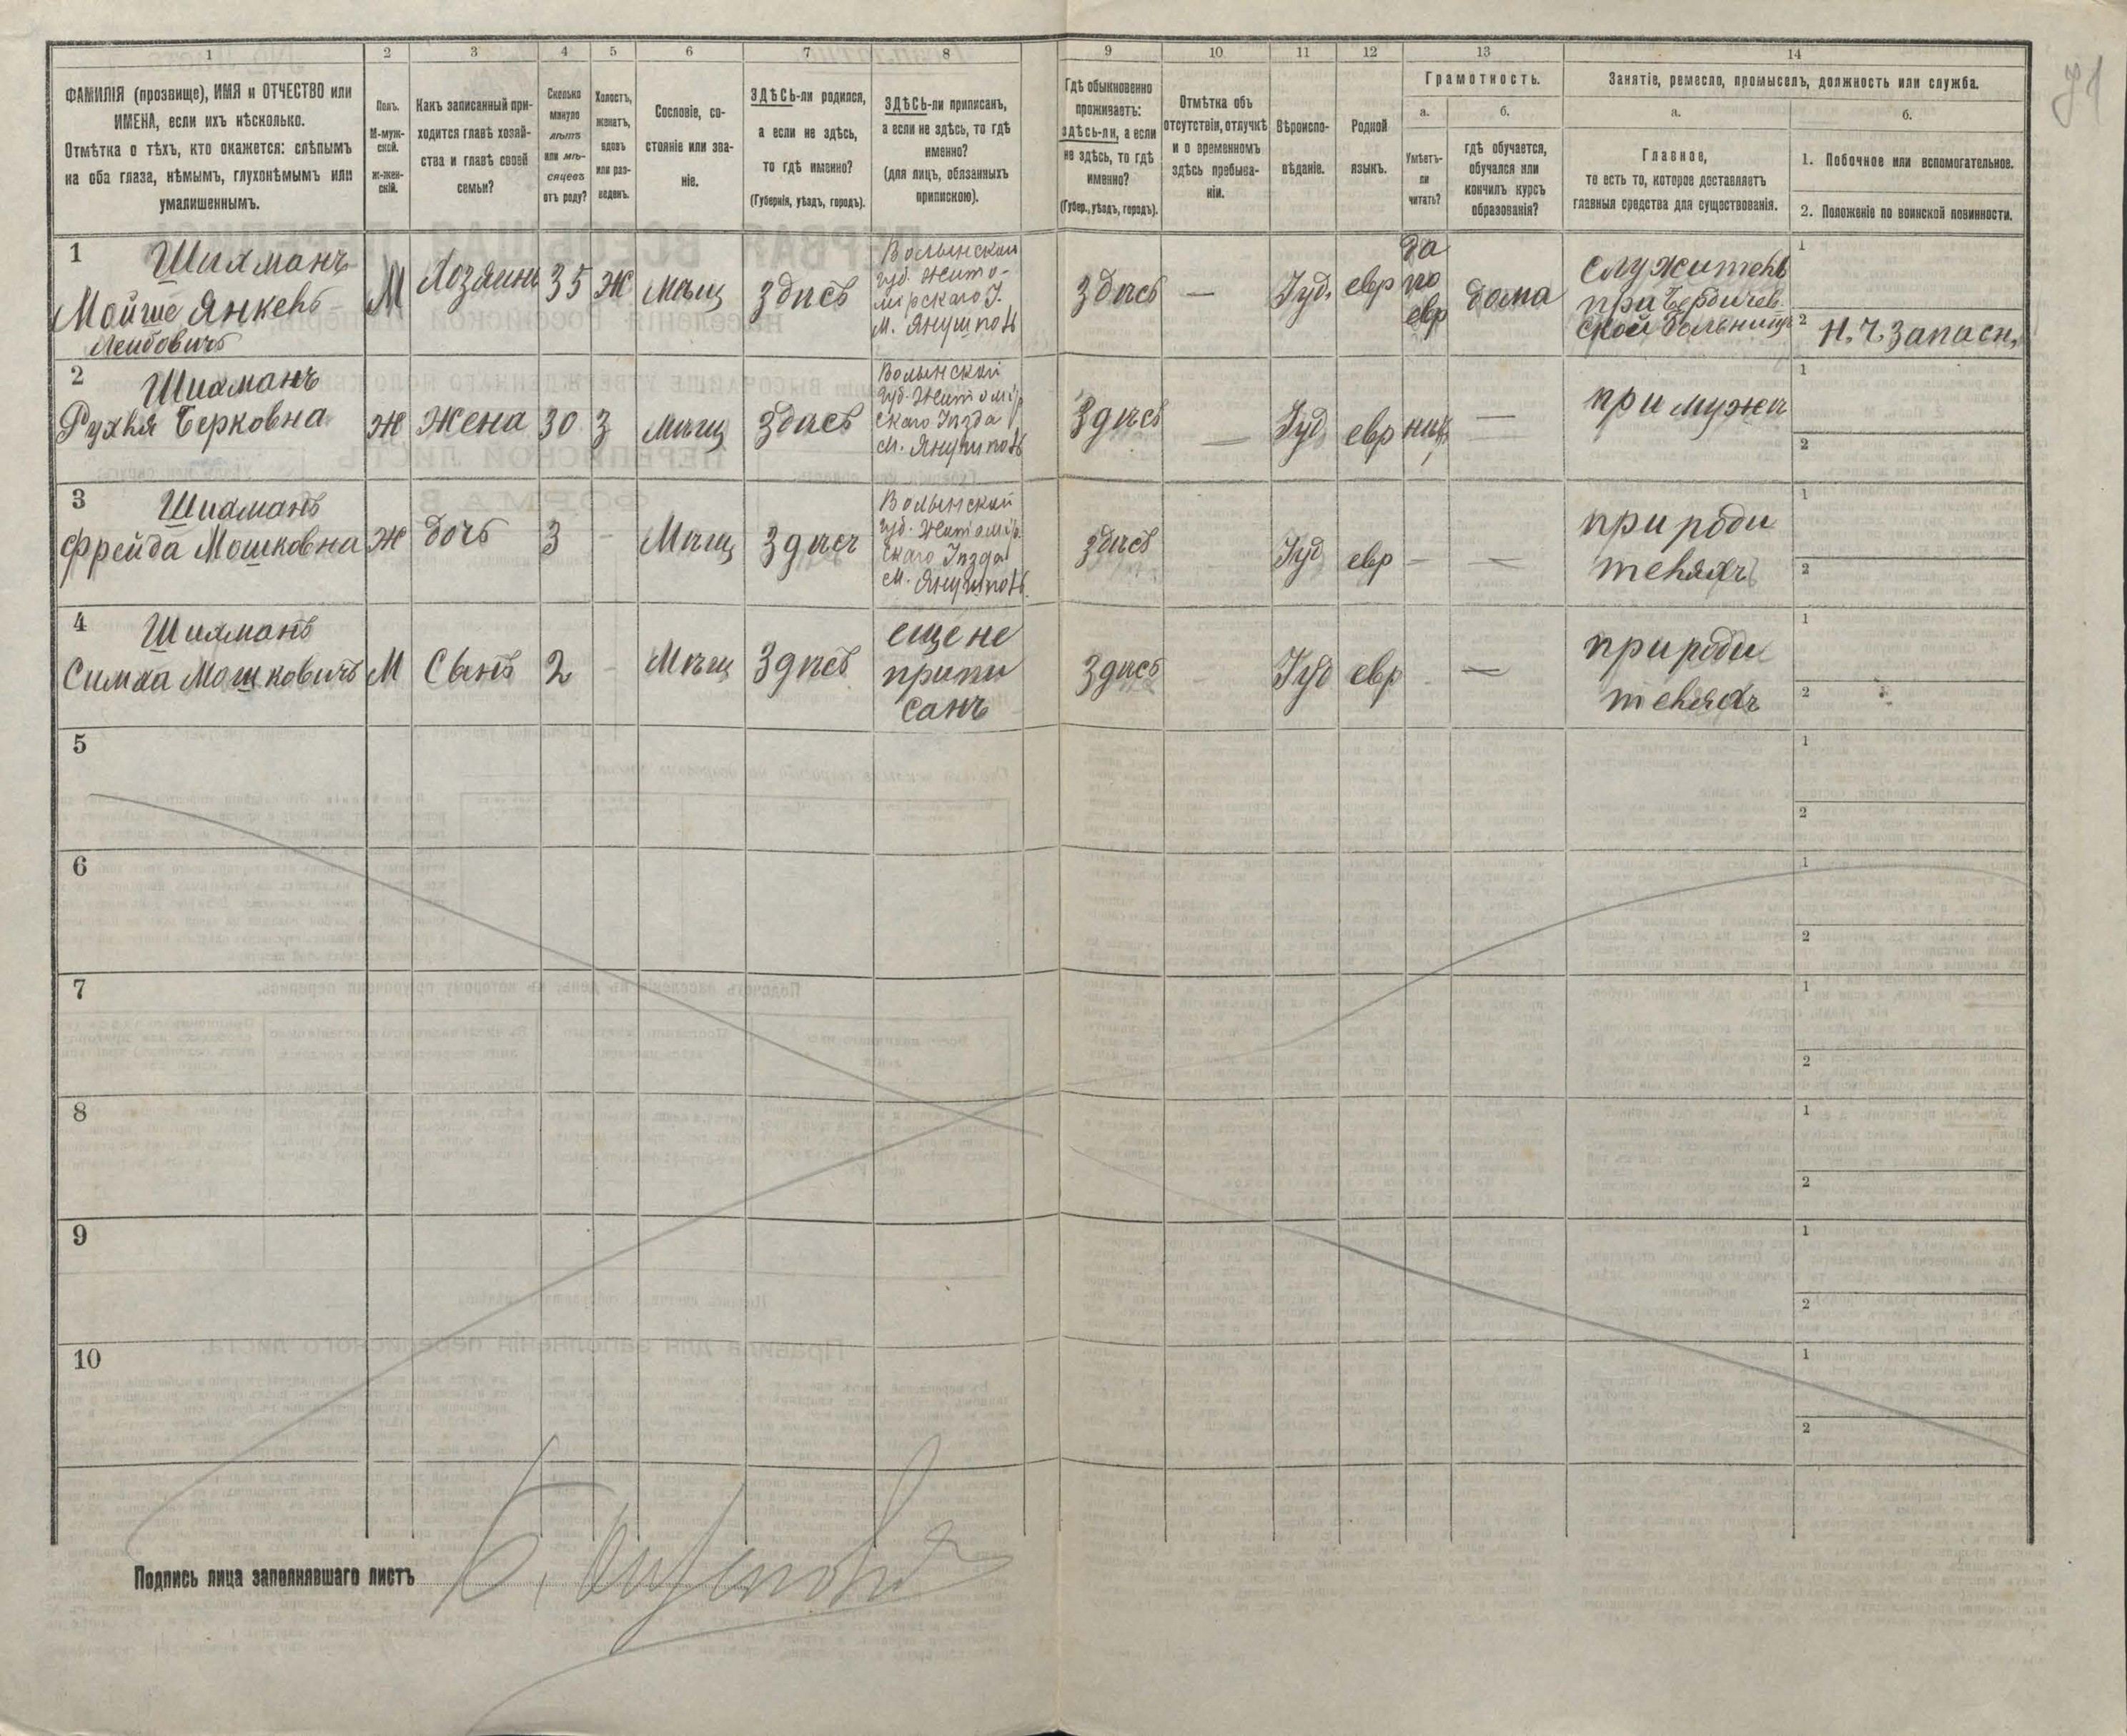 1 2 3 4 5 6 7 8 9 10 11 12 13 14
ФАМИЛІЯ (прозвище), ИМЯ и ОТЧЕСТВО или
ИМЕНА, если ихъ нѣсколько.
Отмѣтка о тѣхъ, кто окажется: слѣпымъ
на оба глаза, нѣмымъ, глухонѣмымъ или
умалишеннымъ.
Полъ.
М-муж-
ской.
ж-жен-
скій.
Какъ записанный при-
ходится главѣ хозяй-
ства и главѣ своей
семьи?
Сколько
минуло
лѣтъ
или мѣ-
сяцевъ
отъ роду?
Холостъ,
женатъ,
вдовъ
или раз-
веденъ.
Сословіе, со-
стояніе или зва-
ніе.
ЗДѢСЬ-ли родился,
а если не здѣсь,
то гдѣ именно?
(Губернія, уѣздъ, городъ).
ЗДѢСЬ-ли приписанъ,
а если не здѣсь, то гдѣ
именно?
(для лицъ, обязанныхъ
припискою).
Гдѣ обыкновенно
проживаетъ:
здѣсь-ли, а если
не здѣсь, то гдѣ
именно?
(Губер., уѣздъ, городъ).
Отмѣтка объ
отсутствіи, отлучкѣ
и о временномъ
здѣсь пребыва-
ніи.
Вѣроиспо-
вѣданіе.
Родной
языкъ.
Грамотность.
а.
Умѣетъ-
ли
читать?
б.
гдѣ обучается,
обучался или
кончилъ курсъ
образованія?
Занятіе, ремесло, промыселъ, должность или служба.
а.
Главное,
то есть то, которое доставляетъ
главныя средства для существованія.
б.
1. Побочное или вспомогательное.
2. Положеніе по воинской повинности.
71
1
Шихманъ
Мойше Янкель
Лейбовичъ
М
Хозяинъ
35
Ж
мѣщ
Здѣсь
Волынской
губ. Жито-
мірскаго У.
м. Янушполь
Здѣсь
—
Іуд.
евр
да
по
евр
дома
служитель
при Бердичев.
ской больницѣ
1
2 Н. Ч. запасн.
2
Шихманъ
Рухля Берковна
Ж
Жена
30
З
мѣщ
Здѣсь
Волынской
губ. Житомір
скаго Уѣзда
м. Янушполь
Здѣсь
—
Іуд
евр
нѣтъ
—
при мужѣ
1
2
3
Шихманъ
Фрейда Мошковна
Ж
дочь
3
-
Мѣщ
Здѣсь
Волынской
губ. Житомір.
скаго Уѣзда
м. Янушполь
Здѣсь
Іуд
евр
—
—
при роди
теляхъ
1
2
4
Шихманъ
Симха Мошковичъ
М
Сынъ
2
-
Мѣщ
Здѣсь
еще не
припи
санъ
Здѣсь
Іуд
евр
-
—
при роди
теляхъ
1
2
5
1
2
6
1
2
7
1
2
8
1
2
9
1
2
10
1
2
Подпись лица заполнявшаго листъ